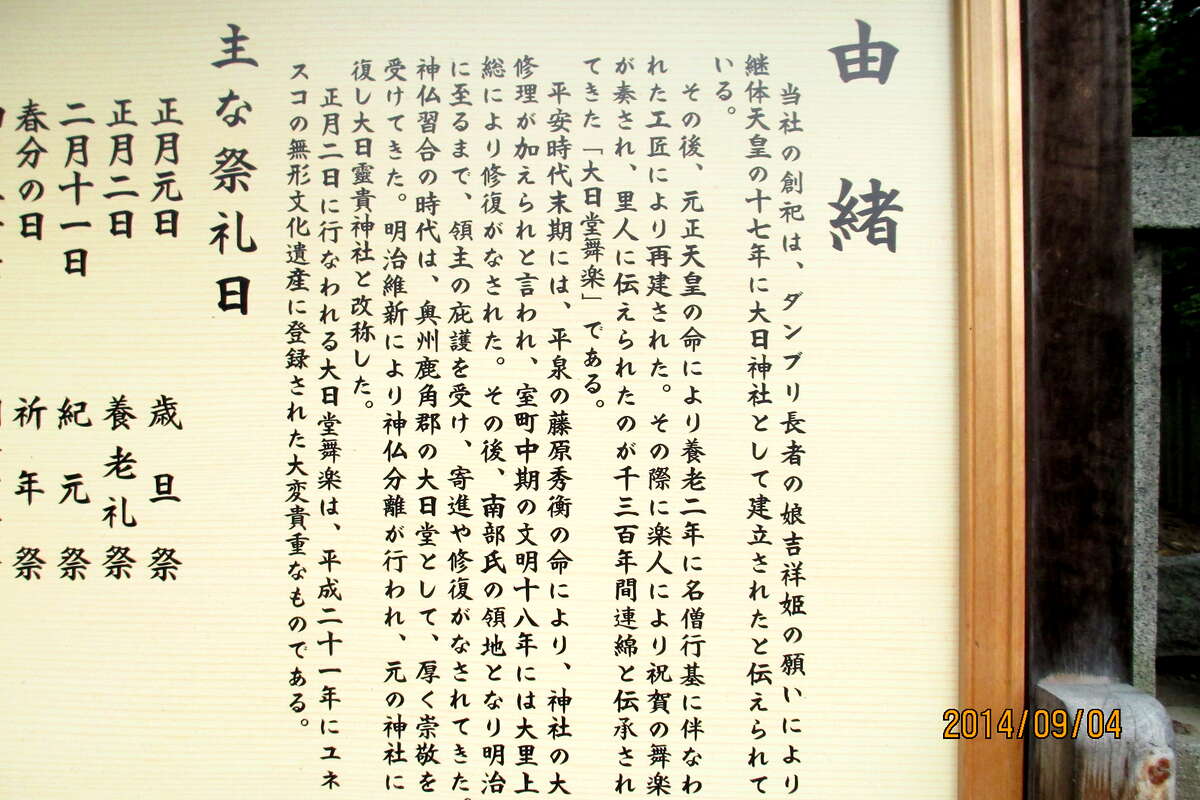 由緒
当社の創祀は、ダンブリ長者の娘吉祥姫の願いにより
継体天皇の十七年に大日神社として建立されたと伝えられて
いる。
その後、元正天皇の命により養老二年に名僧行基に伴なわ
れた工匠により再建された。その際に楽人により祝賀の舞楽
が奏され、里人に伝えられたのが千三百年間連綿と伝承され
てきた「大日堂舞楽」である。
平安時代末期には、平泉の藤原秀衡の命により、神社の大
修理が加えられと言われ、室町中期の文明十八年には大里上
総により修復がなされた。その後、南部氏の領地となり明治
に至るまで、領主の庇護を受け、寄進や修復がなされてきた。
神仏習合の時代は、奥州鹿角郡の大日堂として、厚く崇敬を
受けてきた。明治維新により神仏分離が行われ、元の神社に
復し大日靈貴神社と改称した。
正月二日に行なわれる大日堂舞楽は、平成二十一年にユネ
スコの無形文化遺産に登録された大変貴重なものである。
主な祭礼日
正月元日 歳旦祭
正月二日 養老礼祭
二月十一日 紀元祭
春分の日 祈年祭
2014/09/04